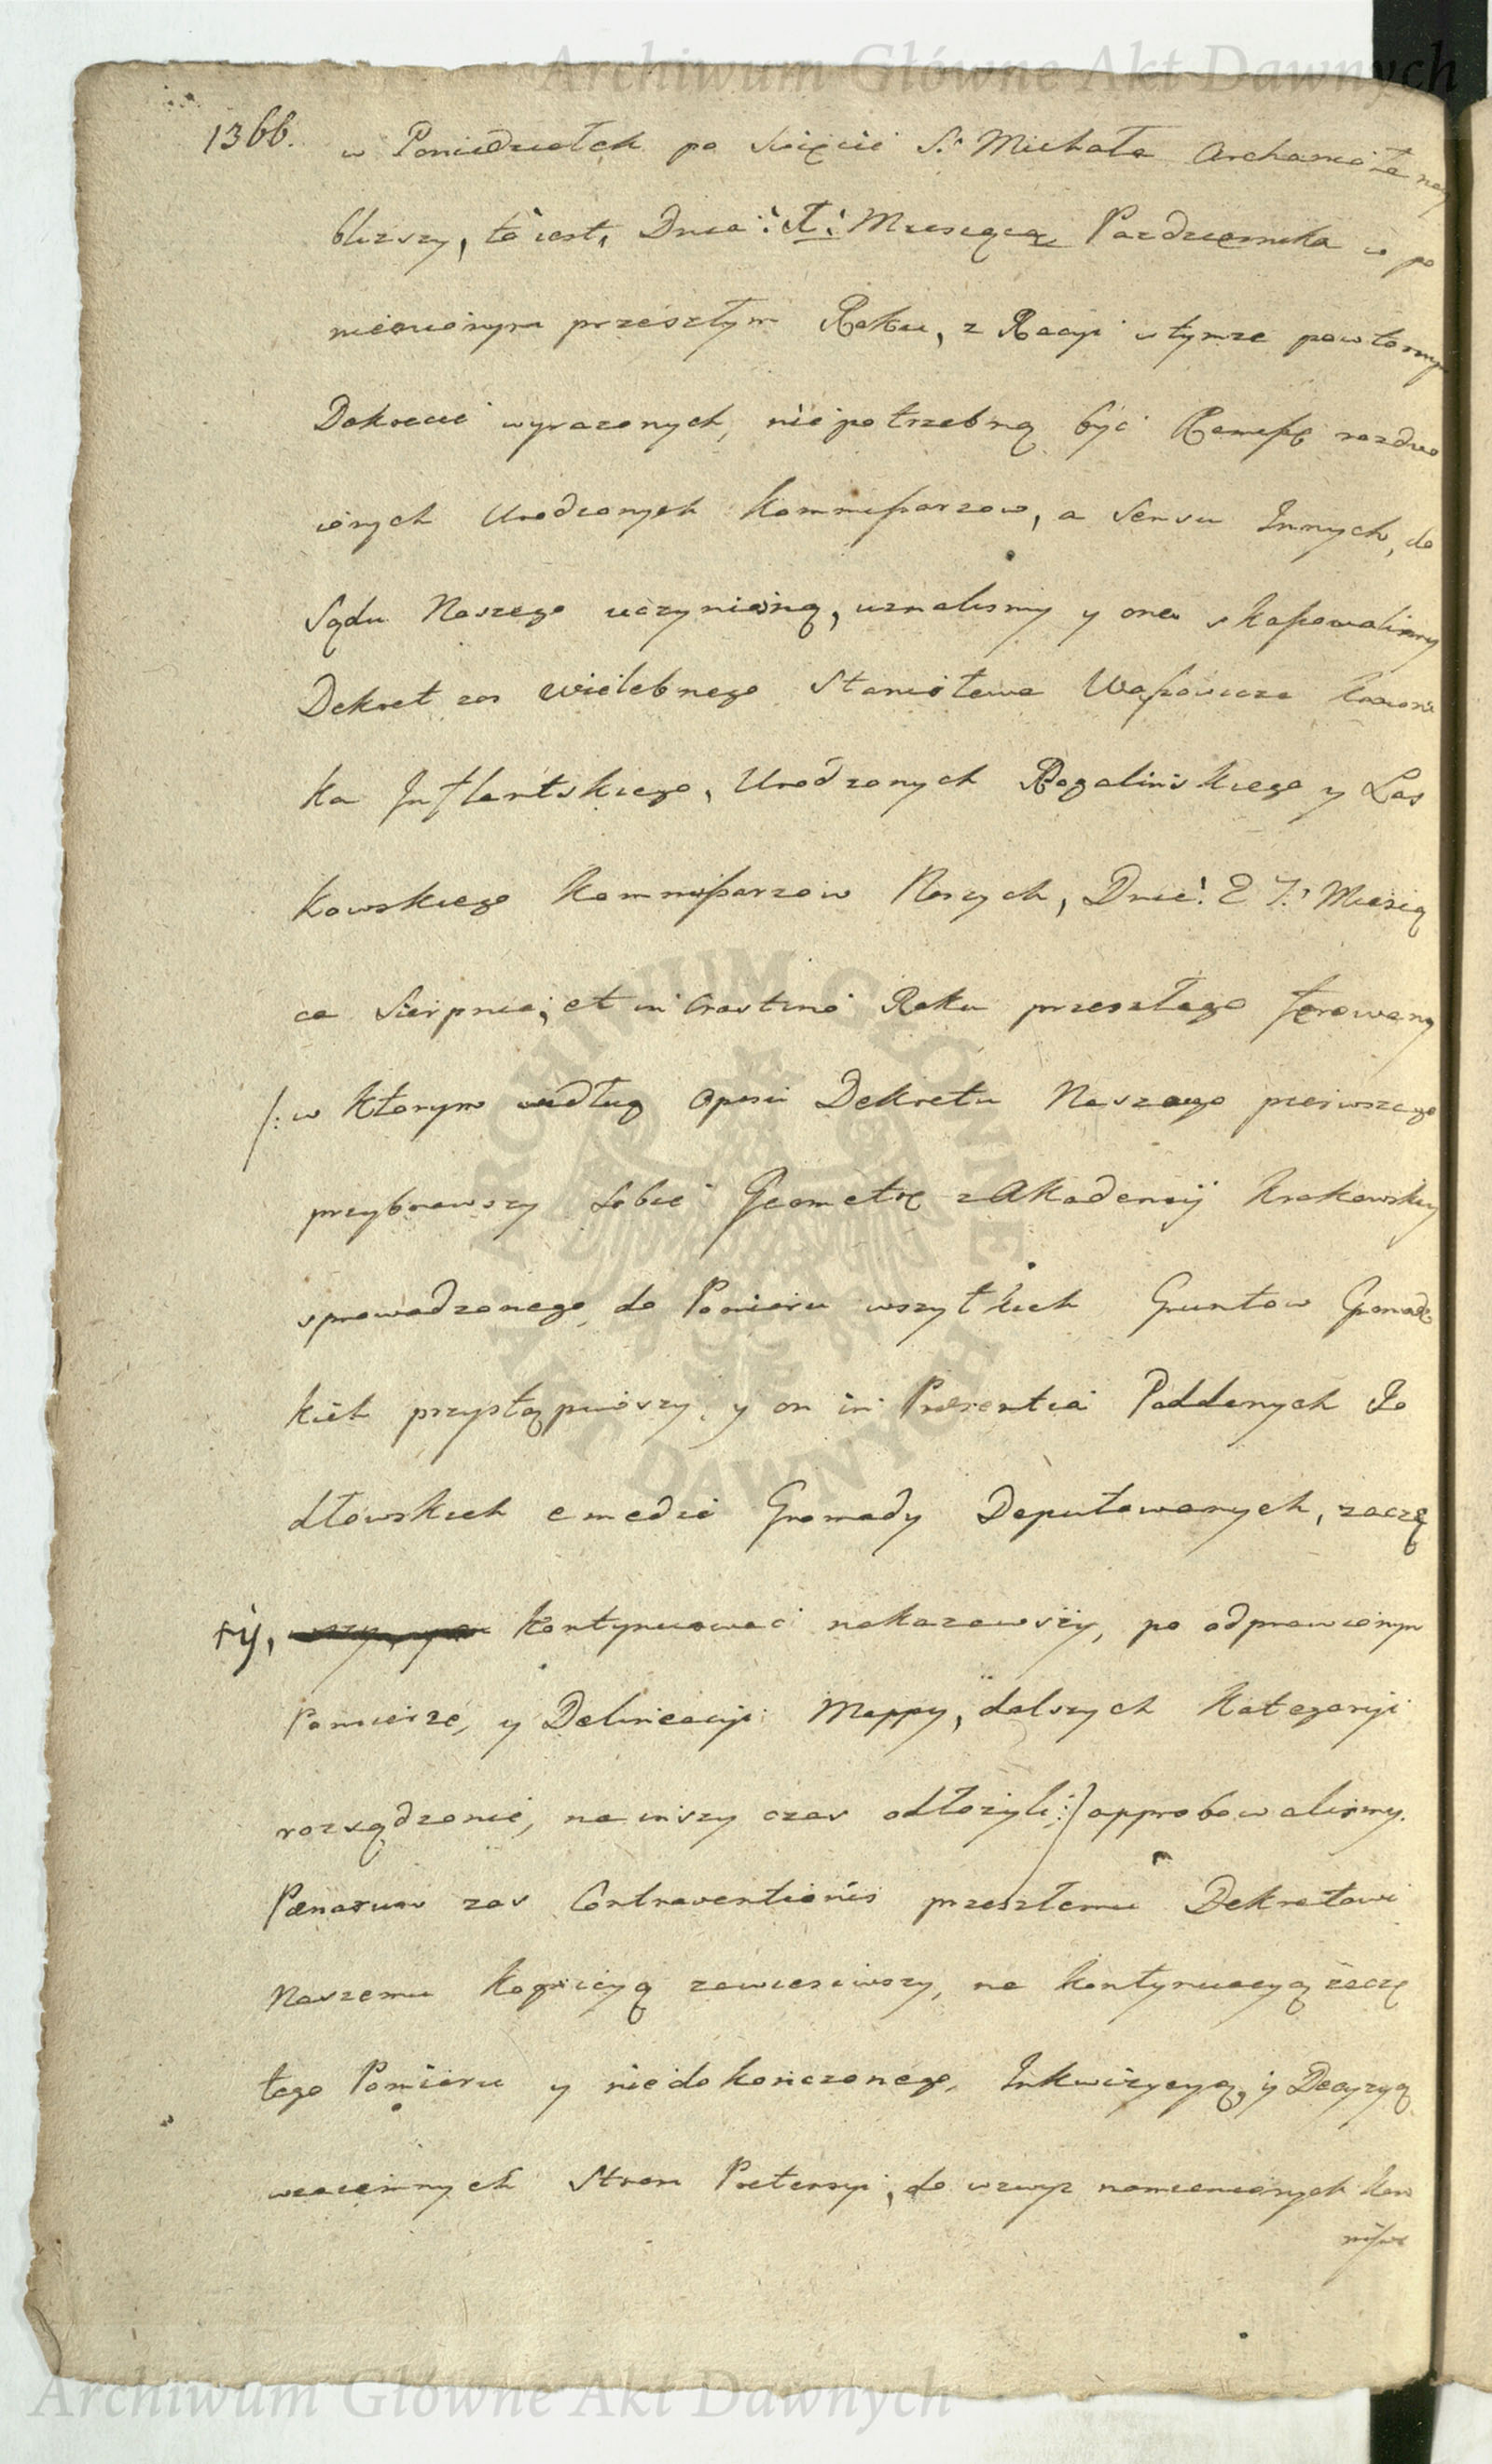 Archiwum Główne Akt Dawnych
1366.
w Poniedziałek po Swięcie S.° Michała Archanioła nay
blizszy, to iest, Dnia: 1: Miesiąca Pazdziernika w po
mienionym przeszłym Roku, z Racyi w tymze powtornym
Dekrecie wyrazonych, niepotrzebną być Remissę rozdwo
ionych Urodzonych Kommissarzow, a Sensu Innych, do
Sądu Naszego uczynioną, uznalismy y onę skassowalismy
Dekret zas Wielebnego Stanisława Wassowicza Kanoni
ka Inflantskiego, Urodzonych Rogalinskiego y Las
kowskiego Kommissarzow Naszych, Dnia: 27: Miesią
ca Sierpnia, et in Crastino Roku przeszłego ferowany
/: w ktorym według Opisu Dekretu Naszego pierwszego
przybrawszy Sobie Geometrę z Akademij Krakowskiey
sprowadzonego, do Pomiaru wszytkich Gruntow Gromadz
kich przystąpiwszy, y on in Præsentia Poddanych Jo
dłowskich e medio Gromady Deputowanych, zaczę
ty, kontynuowac nakazawszy, po odprawionym
Pomiarze, y Delineacyi Mappy, dalszych Kategoryi
rozsądzenie, na inszy czas odłozyli :/ approbowalismy.
Pœnarum zas Contraventionis przeszłemu Dekretowi
Naszemu Kognicyą zawiesiwszy, na kontynuacyą zaczę
tego Pomiaru y niedokonczonego, Inkwizycyą, y Decyzyą
wzaiemnych Stron Pretensyi, do wzwyz namienionych Kom
missa
ARCHIWUM GŁÓWNE AKT DAWNYCH
Archiwum Główne Akt Dawnych